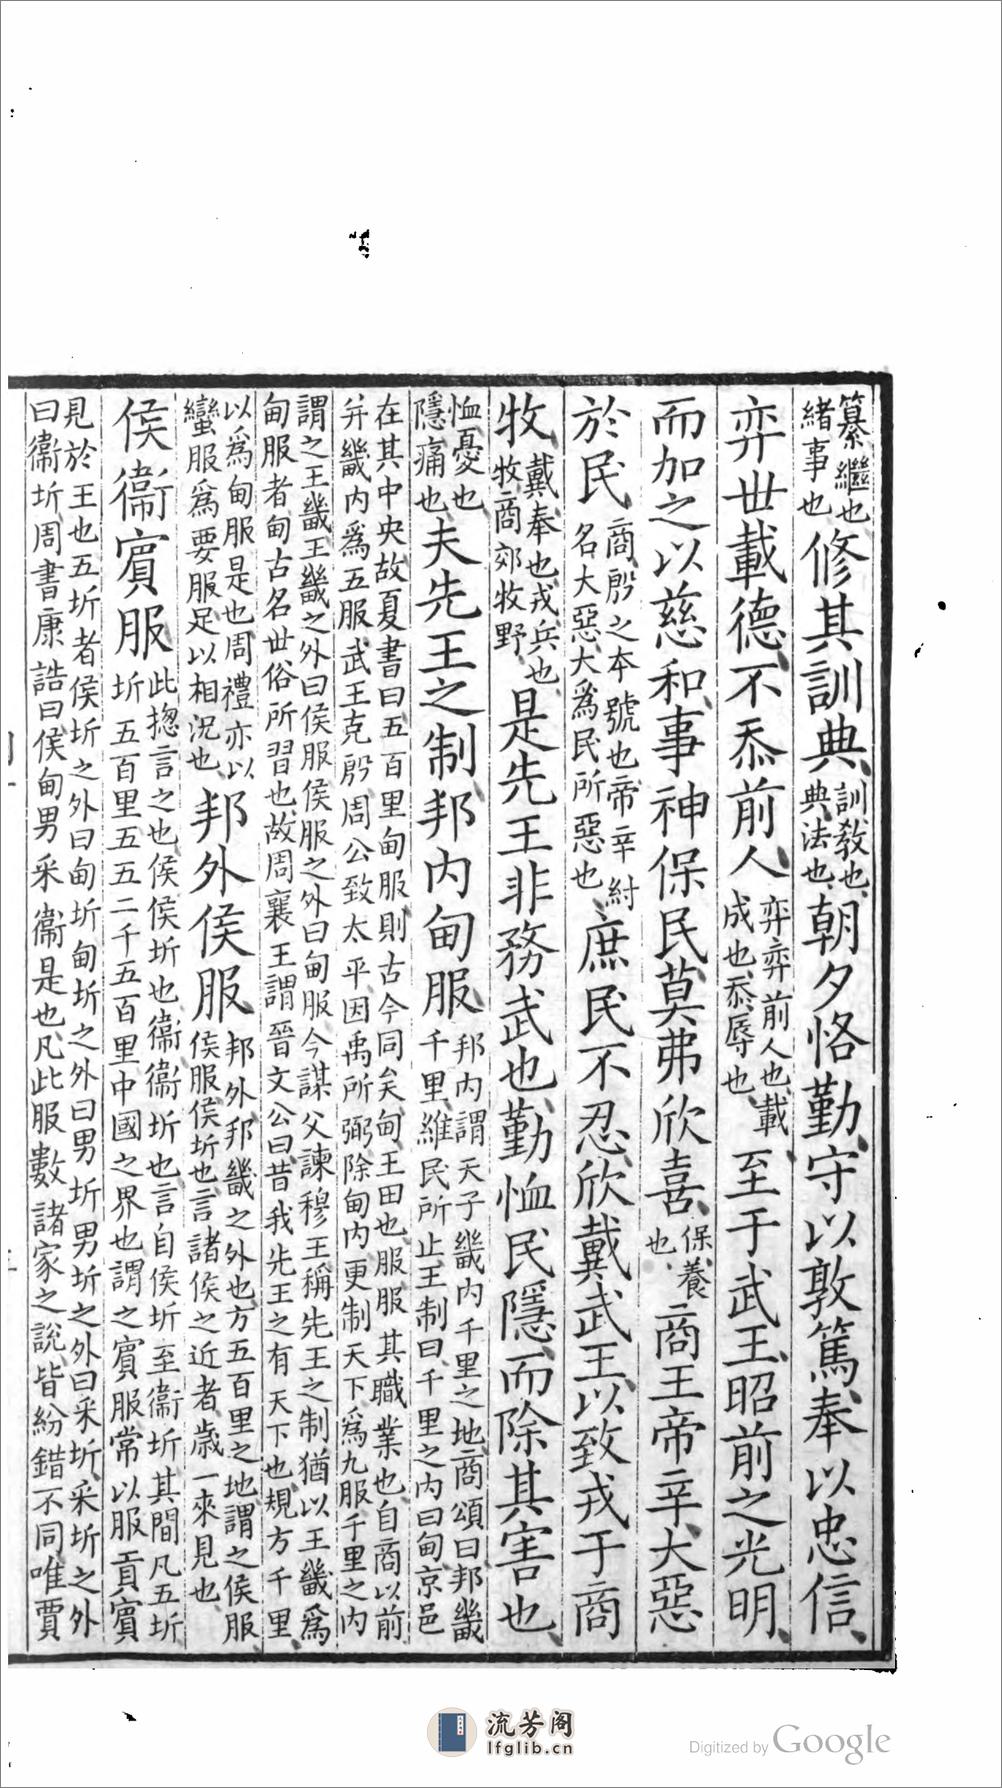 纂繼也緒事也修其訓典訓教也典法也朝夕恪勤守以敦篤奉以忠信
弈世載德不忝前人弈弈前人也載成也忝辱也至于武王昭前之光明
而加之以慈和事神保民莫弗欣喜保養也商王帝辛大惡
於民商殷之本號也帝辛紂名大惡大爲民所惡也庶民不忍欣戴武王以致戎于商
牧戴奉也戎兵也牧商郊牧野是先王非務武也勤恤民隱而除其害也
恤憂也隱痛也夫先王之制邦內甸服邦內謂天子畿內千里之地商頌曰邦畿千里維民所止王制曰千里之內曰甸京邑
在其中央故夏書曰五百里甸服則古今同矣甸王田也服服其職業也自商以前并畿內爲五服武王克殷周公致太平因禹所弼除甸內更制天下爲九服千里之內
謂之王畿王畿之外曰侯服侯服之外曰甸服今謀父諫穆王稱先王之制猶以王畿爲甸服者甸古名世俗所習也故周襄王謂晉文公曰昔我先王之有天下也規方千里
以爲甸服是也周禮亦以蠻服爲要服足以相況也邦外侯服邦外邦畿之外也方五百里之地謂之侯服侯服侯圻也言諸侯之近者歲一來見也
侯衞賓服此揔言之也侯侯圻也衞衞圻也言自侯圻至衞圻其間凡五圻圻五百里五五二千五百里中國之界也謂之賓服常以服貢賓
見於王也五圻者侯圻之外曰甸圻甸圻之外曰男圻男圻之外曰采圻采圻之外曰衞圻周書康誥曰侯甸男采衞是也凡此服數諸家之說皆紛錯不同唯賈
流芳阁
lfglib.cn
Digitized by Google